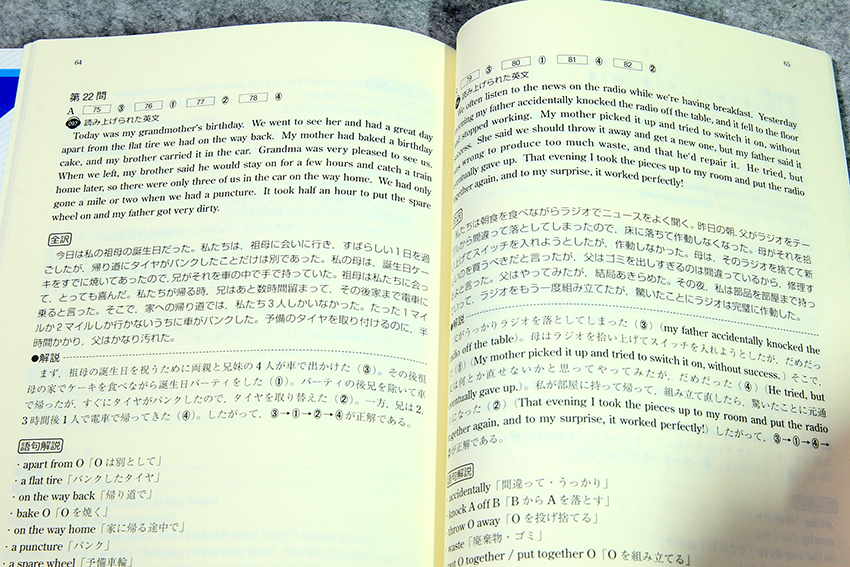 64
第22問
A 75 ③ 76 ① 77 ② 78 ④
読み上げられた英文
Today was my grandmother's birthday. We went to see her and had a great day
apart from the flat tire we had on the way back. My mother had baked a birthday
cake, and my brother carried it in the car. Grandma was very pleased to see us.
When we left, my brother said he would stay on for a few hours and catch a train
home later, so there were only three of us in the car on the way home. We had only
gone a mile or two when we had a puncture. It took half an hour to put the spare
wheel on and my father got very dirty.
全訳
今日は私の祖母の誕生日だった。私たちは、祖母に会いに行き、すばらしい1日を過
ごしたが、帰り道にタイヤがパンクしたことだけは別であった。私の母は、誕生日ケー
キをすでに焼いてあったので、兄がそれを車の中で手で持っていた。祖母は私たちに会っ
て、とっても喜んだ。私たちが帰る時、兄はあと数時間留まって、その後家まで電車に
乗ると言った。そこで、家への帰り道では、私たち3人しかいなかった。たった1マイ
ルか2マイルしか行かないうちに車がパンクした。予備のタイヤを取り付けるのに、半
時間かかり、父はかなり汚れた。
●解説
まず，祖母の誕生日を祝うために両親と兄妹の4人が車で出かけた（③）。その後祖
母の家でケーキを食べながら誕生日パーティをした（①）。パーティの後兄を除いて車
で帰ったが，すぐにタイヤがパンクしたので，タイヤを取り替えた（②）。一方，兄は2,
3時間後1人で電車で帰ってきた（④）。したがって，③→①→②→④が正解である。
語句解説
・apart from O「Oは別として」
・a flat tire「パンクしたタイヤ」
・on the way back「帰り道で」
・bake O「Oを焼く」
・on the way home「家に帰る途中で」
・a puncture「パンク」
・a spare wheel「予備車輪」
65
79 ③ 80 ① 81 ④ 82 ②
読み上げられた英文
often listen to the news on the radio while we're having breakfast. Yesterday
my father accidentally knocked the radio off the table, and it fell to the floor
stopped working. My mother picked it up and tried to switch it on, without
She said we should throw it away and get a new one, but my father said it
was wrong to produce too much waste, and that he'd repair it. He tried, but
gave up. That evening I took the pieces up to my room and put the radio
together again, and to my surprise, it worked perfectly!
私たちは朝食を食べながらラジオでニュースをよく聞く。昨日の朝，父がラジオをテー
から間違って落としてしまったので、床に落ちて作動しなくなった。母がそれを拾
げてスイッチを入れようとしたが、作動しなかった。母は、そのラジオを捨てて新
いのを買うべきだと言ったが、父はゴミを出しすぎるのは間違っているから、修理す
と言った。父はやってみたが、結局あきらめた。その夜、私は部品を部屋まで持っ
いって、ラジオをもう一度組み立てたが、驚いたことにラジオは完璧に作動した。
●解説
がうっかりラジオを落としてしまった（③）(my father accidentally knocked the
radio off the table)。母はラジオを拾い上げてスイッチを入れようとしたが，だめだっ
（①）(My mother picked it up and tried to switch it on, without success.) そこで，
は何とか直せないかと思ってやってみたが，だめだった（④）(He tried, but
gave up.)。私が部屋に持って帰って，組み立て直したら，驚いたことに元通
になった（②）(That evening I took the pieces up to my room and put the radio
together again, and to my surprise, it worked perfectly!) したがって，③→①→④→
が正解である。
語句解説
accidentally「間違って・うっかり」
knock A off B「BからAを落とす」
throw O away「Oを投げ捨てる」
waste「廃棄物・ゴミ」
put O together / put together O「Oを組み立てる」